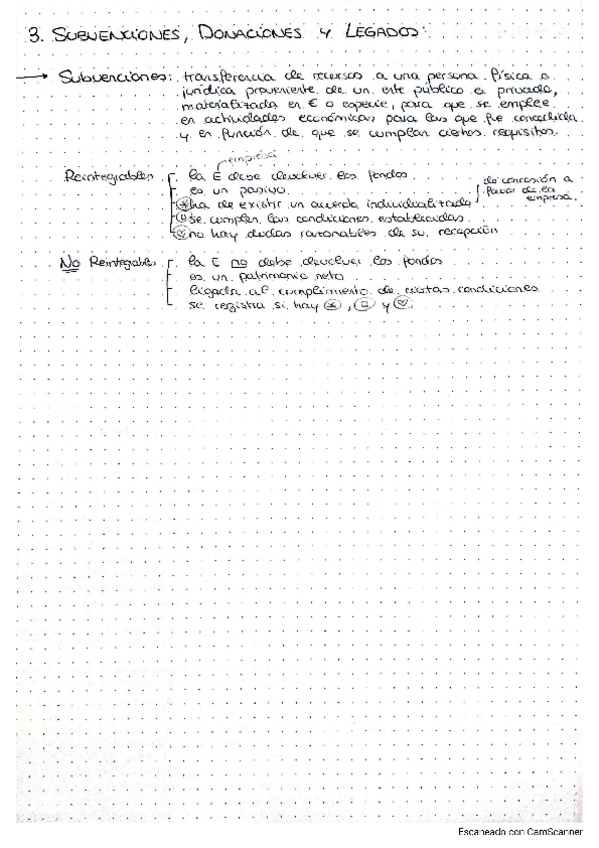 3. SUBVENCIONES, DONACIONES Y LEGADOS:
→ Subvenciones: transferencia de recursos a una persona física o
jurídica proveniente de un ente público o privado,
materializada en € o especie, para que se emplee
en actividades económicas para las que fue concedida
y en función de que se cumplan ciertos requisitos.
empresa
Reintegrables la E debe devolver los fondos
es un pasivo
ha de existir un acuerdo individualizado de concesión a
favor de la
empresa.
se cumplen las condiciones establecidas
no hay dudas razonables de su recepción
No Reintegrables la E no debe devolver los fondos
es un patrimonio neto
ligada al cumplimiento de ciertas condiciones
se registra si hay , y
Escaneado con CamScanner